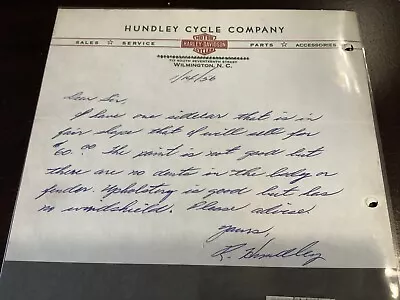 HUNDLEY CYCLE COMPANY
SALES ☆ SERVICE
MOTOR
HARLEY-DAVIDSON
CYCLES
PARTS ☆ ACCESSORIES
SOUTH SEVENTEENTH STREET
WILMINGTON, N. C.
Dear Sir,
I have one sidecar that is in
fair shape that I will sell for
$60.00. The paint is not good but
there are no dents in the body or
fender. Upholstory is good but has
no windshield. Please advise.
Yours,
R. Hundley